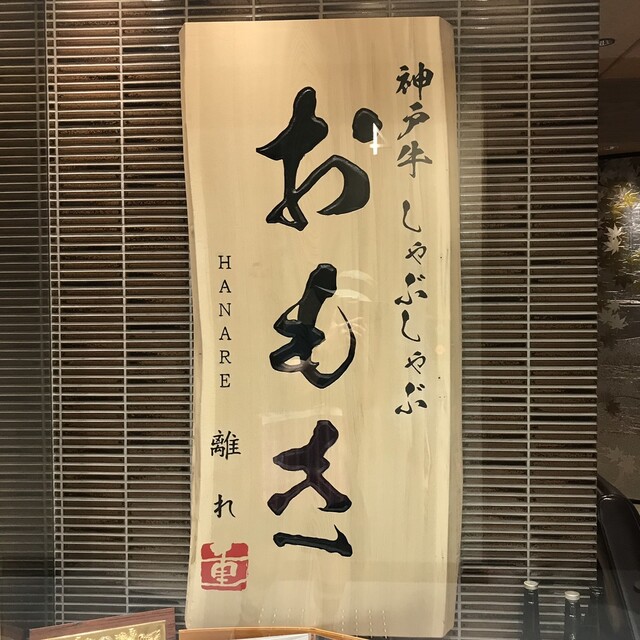 神戸牛 しゃぶしゃぶ
おもき
HANARE
離れ
重